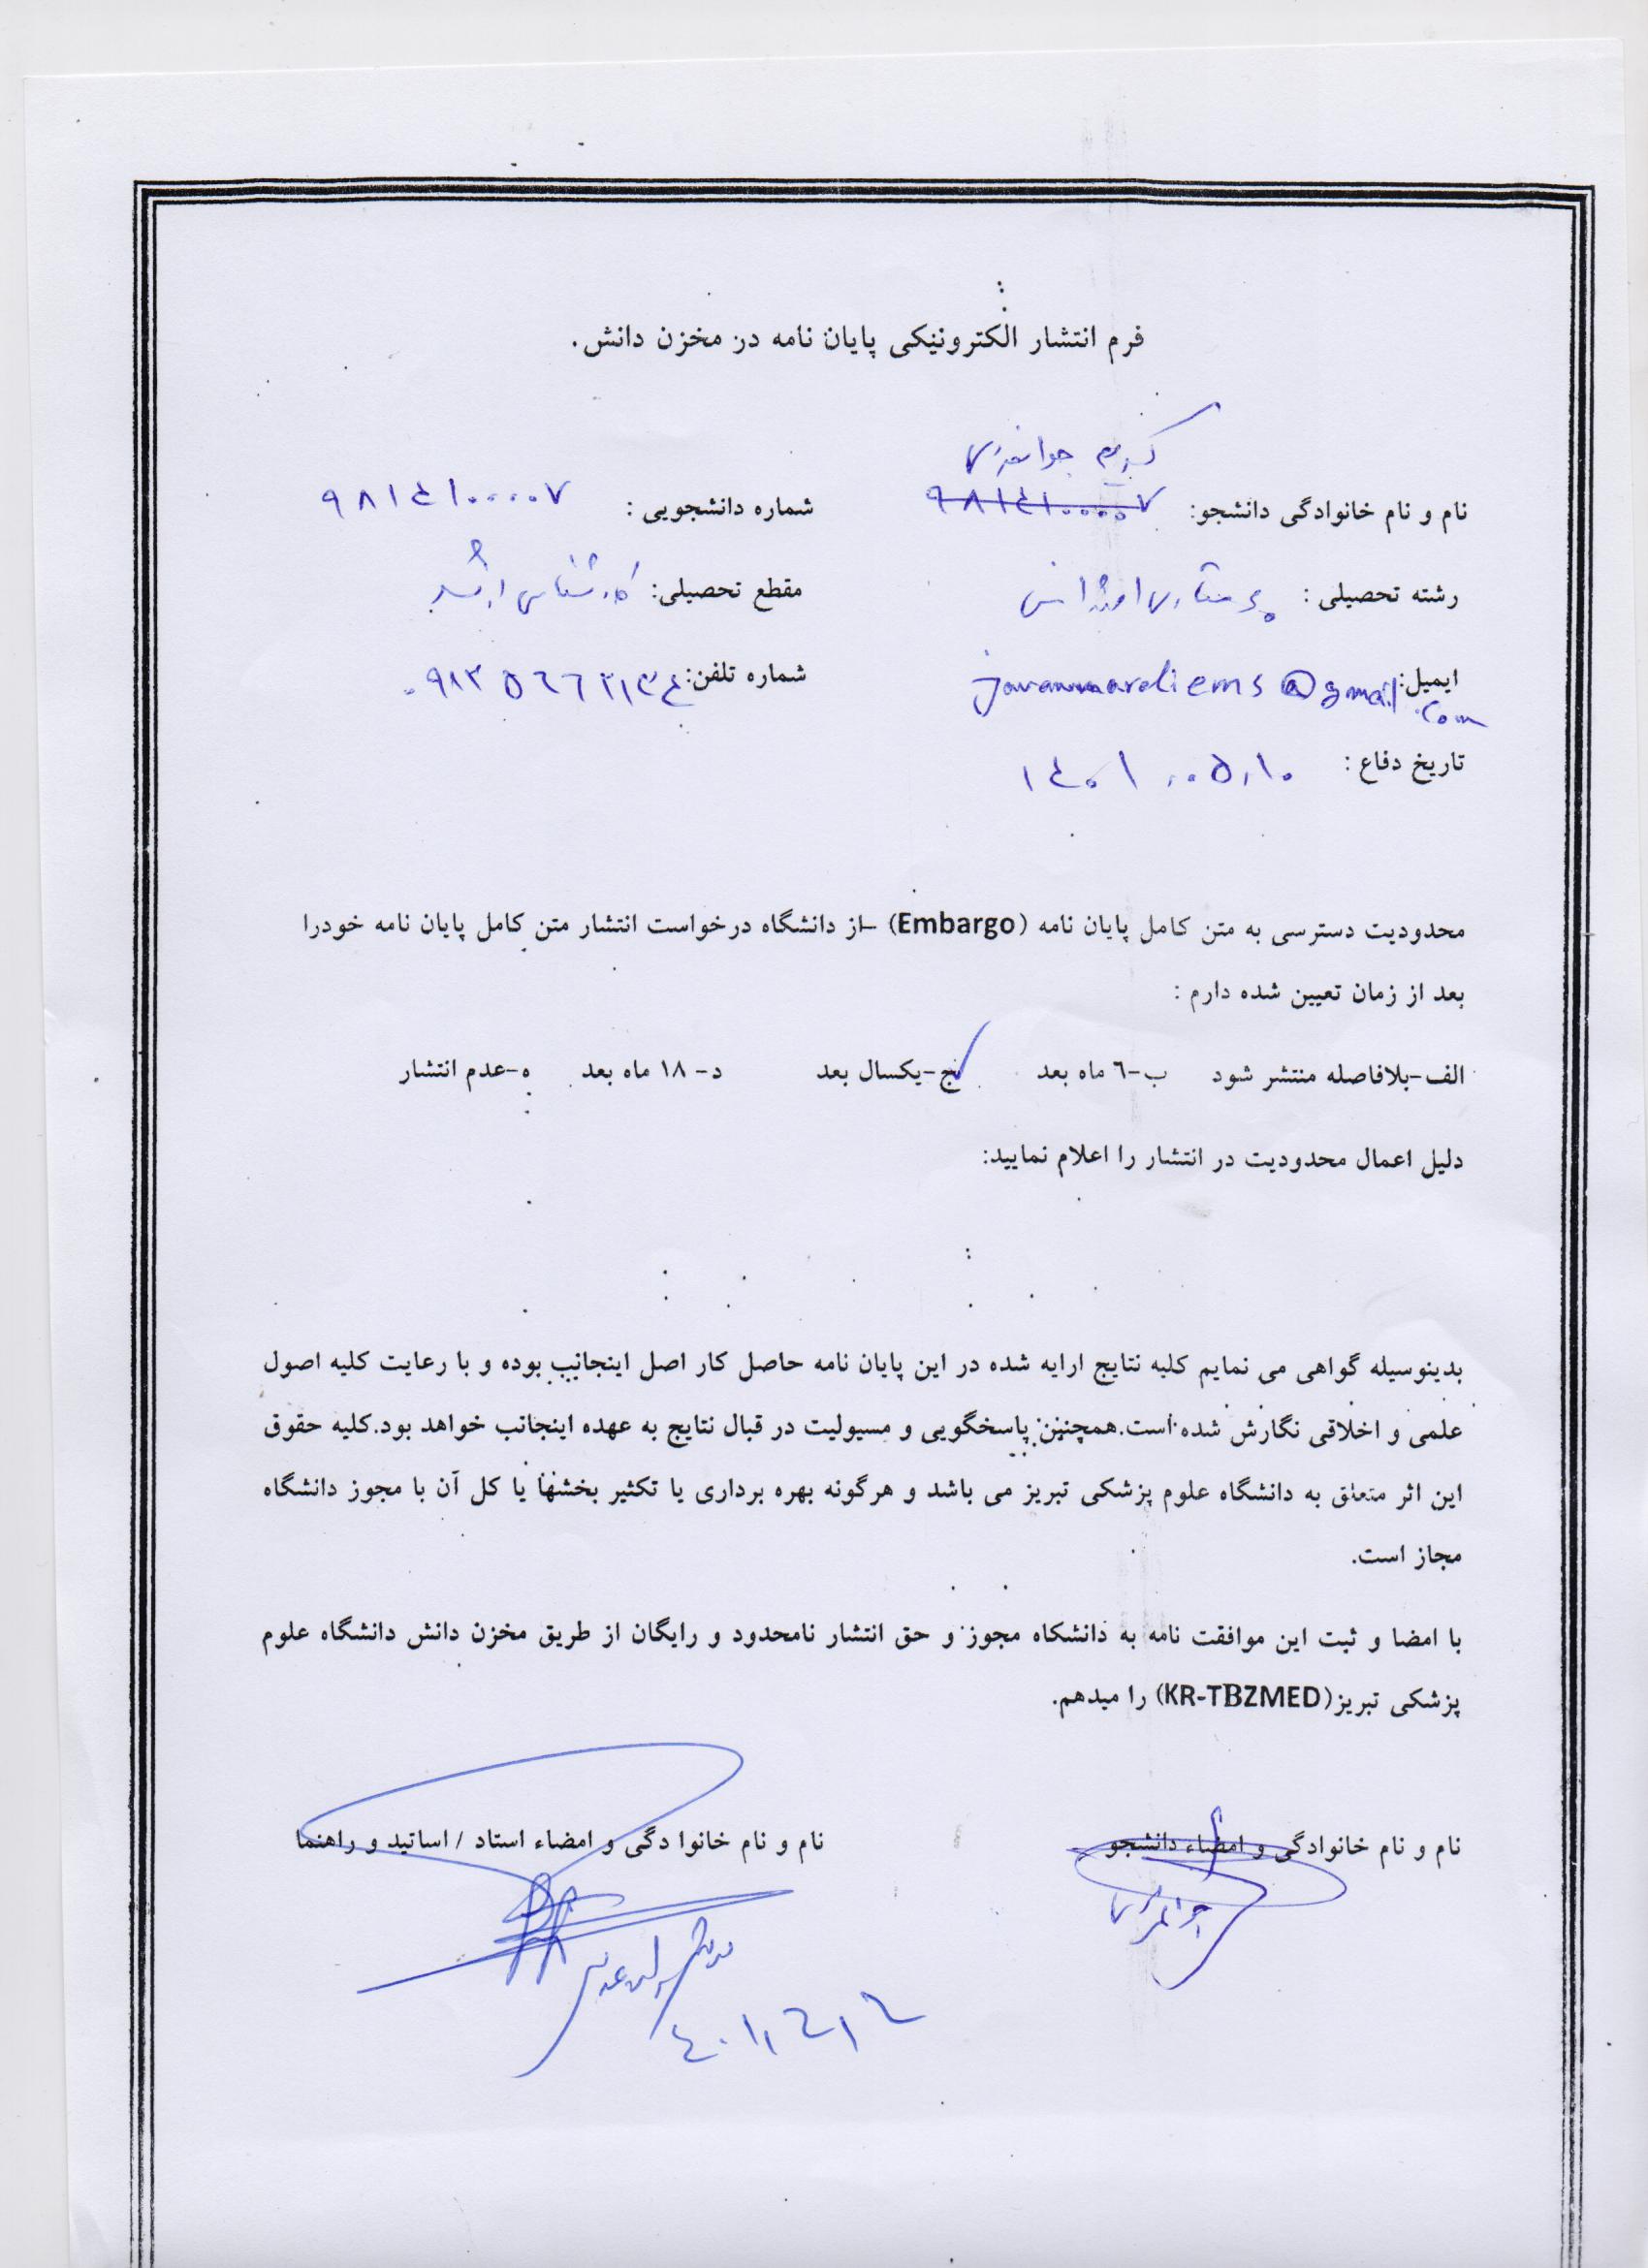 فرم انتشار الکترونیکی پایان نامه در مخزن دانش.
کریم جوانمردی
نام و نام خانوادگی دانشجو: ۹۸۱٤۱۰۰۰۰۷ شماره دانشجویی : ۹۸۱٤۱۰۰۰۰۷
رشته تحصیلی : پرستاری اورژانس مقطع تحصیلی: کارشناسی ارشد
ایمیل: javanmardiems@gmail.com شماره تلفن:
تاریخ دفاع : ۱٤۰۱,۰۵,۱۰
محدودیت دسترسی به متن کامل پایان نامه (Embargo) –از دانشگاه درخواست انتشار متن کامل پایان نامه خودرا
بعد از زمان تعیین شده دارم :
الف-بلافاصله منتشر شود ب-٦ ماه بعد ج-یکسال بعد د- ۱۸ ماه بعد ه-عدم انتشار
دلیل اعمال محدودیت در انتشار را اعلام نمایید:
بدینوسیله گواهی می نمایم کلیه نتایج ارایه شده در این پایان نامه حاصل کار اصل اینجانب بوده و با رعایت کلیه اصول
علمی و اخلاقی نگارش شده است.همچنین پاسخگویی و مسیولیت در قبال نتایج به عهده اینجانب خواهد بود.کلیه حقوق
این اثر متعلق به دانشگاه علوم پزشکی تبریز می باشد و هرگونه بهره برداری یا تکثیر بخشها یا کل آن با مجوز دانشگاه
مجاز است.
با امضا و ثبت این موافقت نامه به دانشکاه مجوز و حق انتشار نامحدود و رایگان از طریق مخزن دانش دانشگاه علوم
پزشکی تبریز(KR-TBZMED) را میدهم.
نام و نام خانوادگی و امضاء دانشجو نام و نام خانوا دگی و امضاء استاد / اساتید و راهنما
جوانمردی